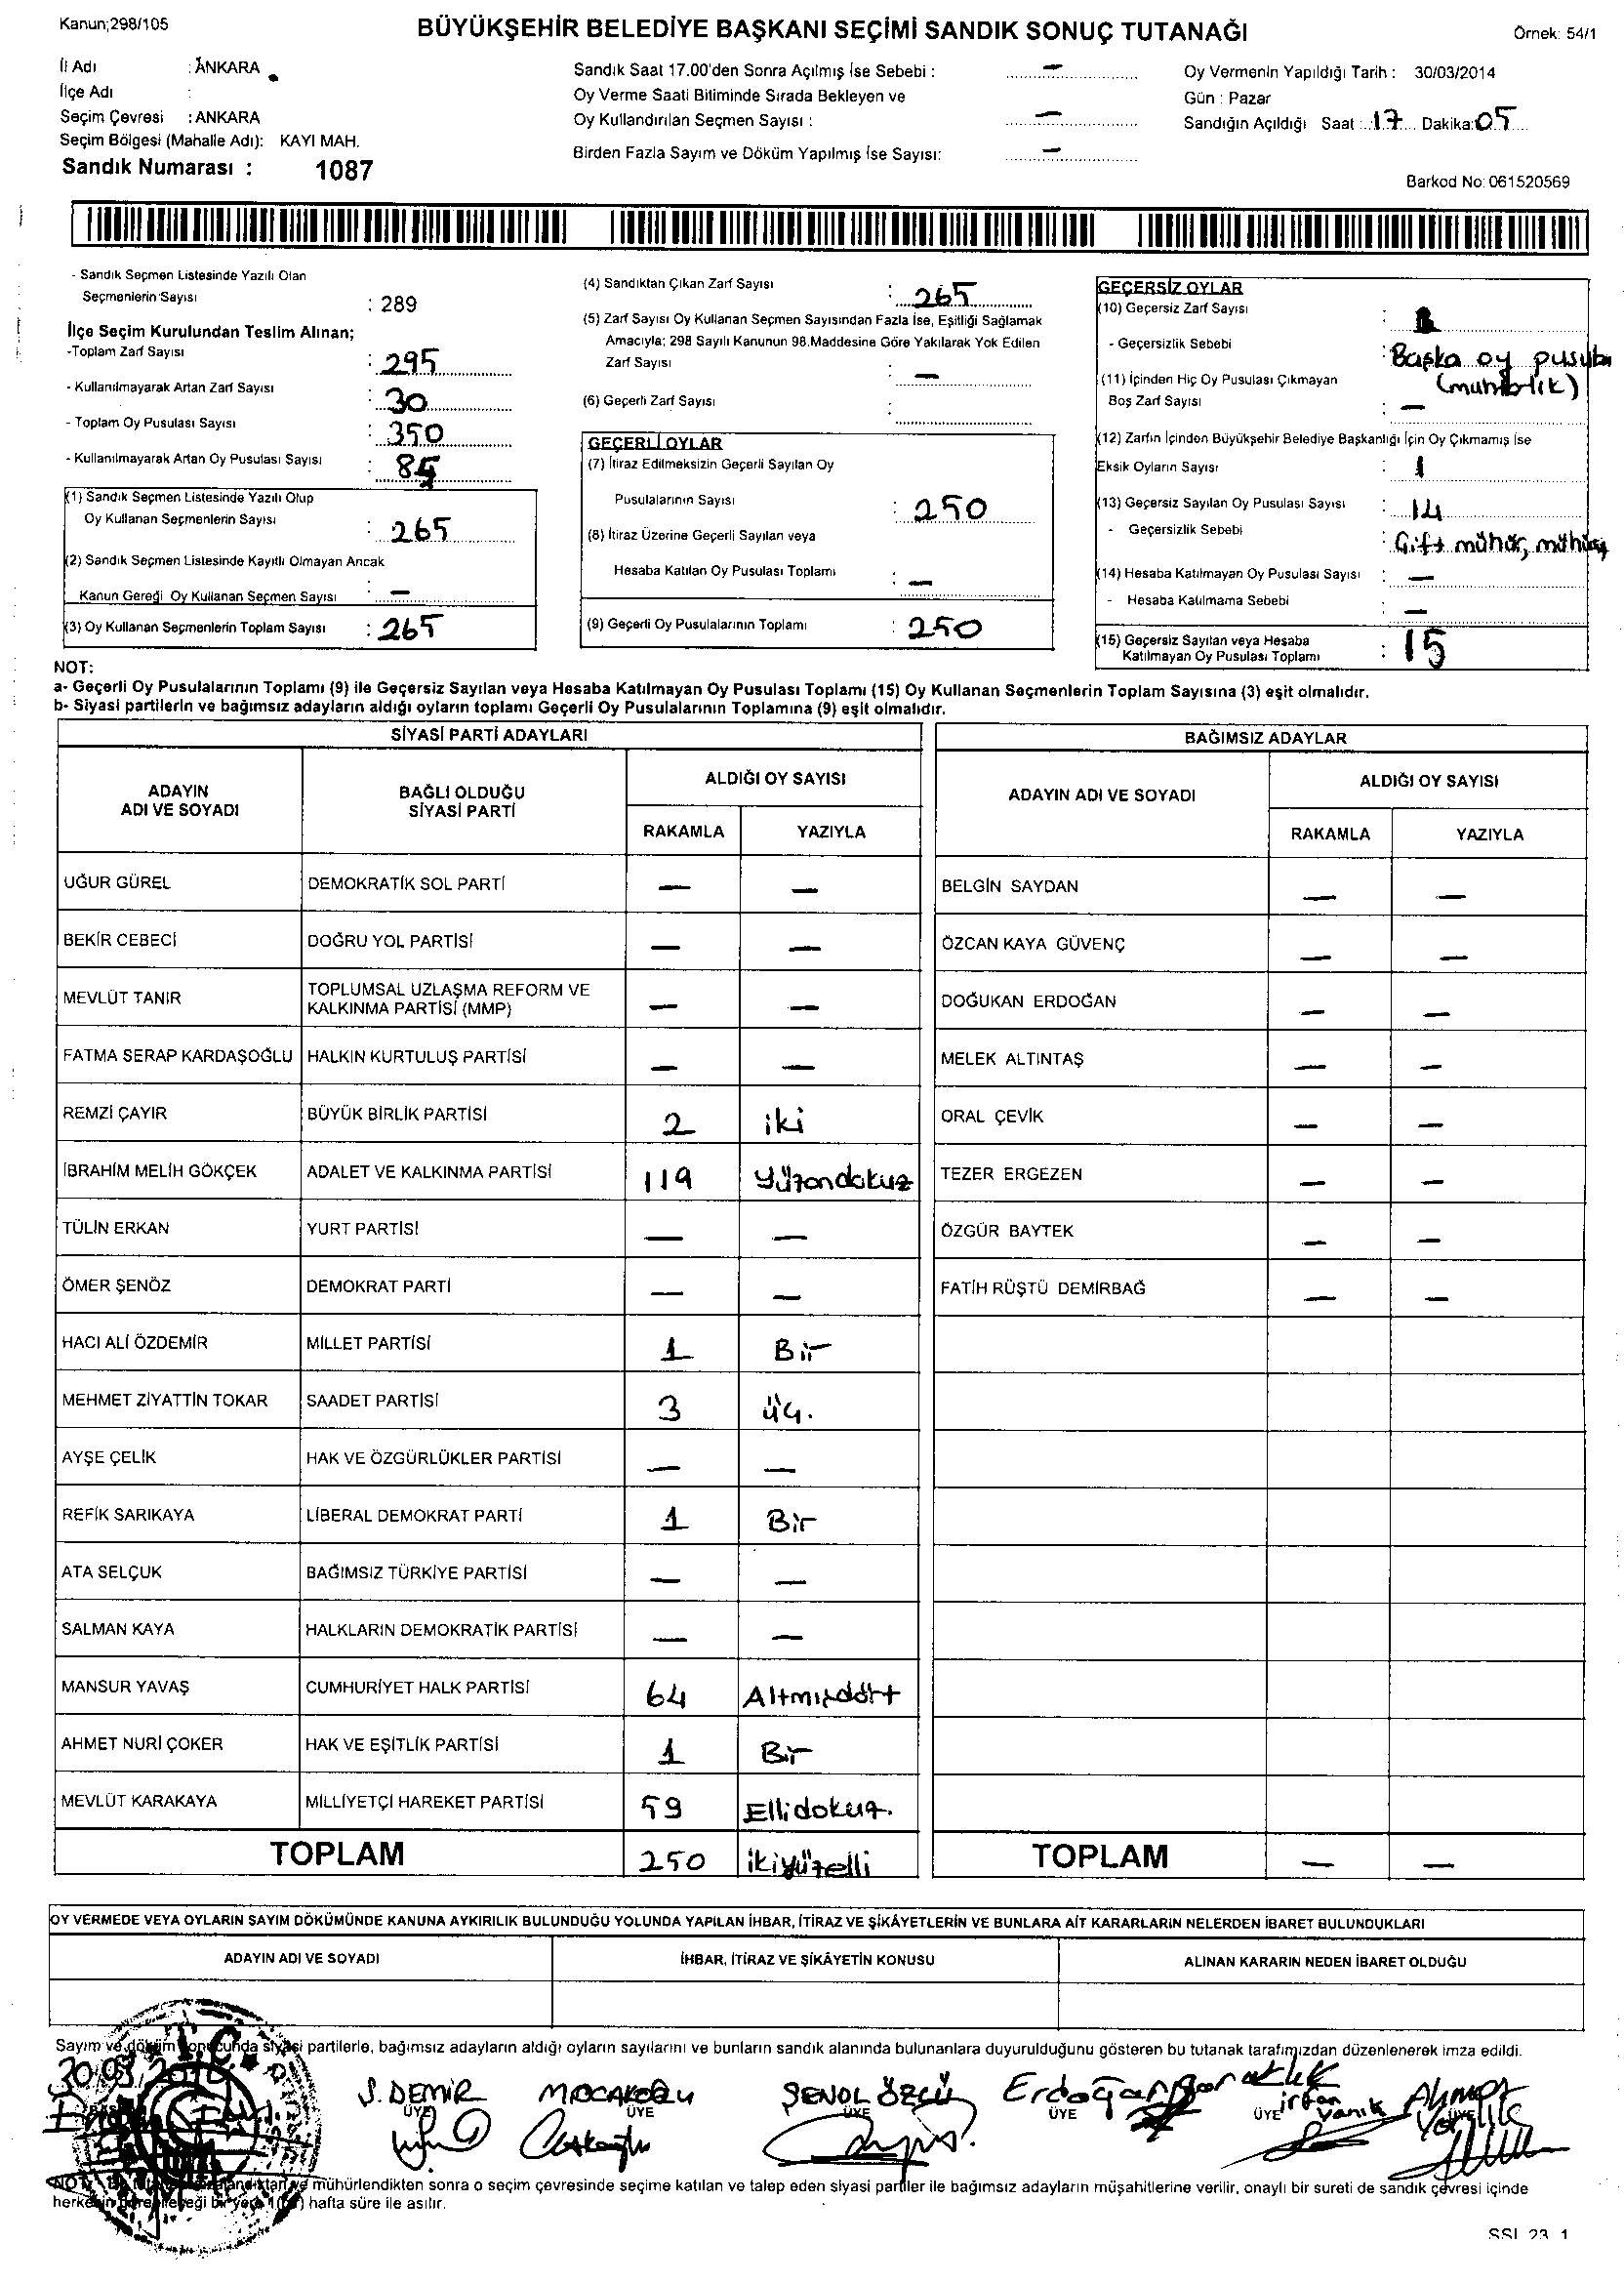 Kanun;298/105
BÜYÜKŞEHİR BELEDİYE BAŞKANI SEÇİMİ SANDIK SONUÇ TUTANAĞI
Örnek: 54/1
İl Adı : ANKARA
İlçe Adı :
Seçim Çevresi : ANKARA
Seçim Bölgesi (Mahalle Adı): KAYI MAH.
Sandık Numarası : 1087
Sandık Saat 17.00'den Sonra Açılmış İse Sebebi : —
Oy Verme Saati Bitiminde Sırada Bekleyen ve
Oy Kullandırılan Seçmen Sayısı : —
Birden Fazla Sayım ve Döküm Yapılmış İse Sayısı: —
Oy Vermenin Yapıldığı Tarih : 30/03/2014
Gün : Pazar
Sandığın Açıldığı Saat : 17 Dakika: 05
Barkod No: 061520569
- Sandık Seçmen Listesinde Yazılı Olan
Seçmenlerin Sayısı : 289
İlçe Seçim Kurulundan Teslim Alınan;
-Toplam Zarf Sayısı : 295
- Kullanılmayarak Artan Zarf Sayısı : 30
- Toplam Oy Pusulası Sayısı : 350
- Kullanılmayarak Artan Oy Pusulası Sayısı :
(1) Sandık Seçmen Listesinde Yazılı Olup
Oy Kullanan Seçmenlerin Sayısı : 265
(2) Sandık Seçmen Listesinde Kayıtlı Olmayan Ancak
Kanun Gereği Oy Kullanan Seçmen Sayısı : —
(3) Oy Kullanan Seçmenlerin Toplam Sayısı : 265
(4) Sandıktan Çıkan Zarf Sayısı : 265
(5) Zarf Sayısı Oy Kullanan Seçmen Sayısından Fazla İse, Eşitliği Sağlamak
Amacıyla; 298 Sayılı Kanunun 98.Maddesine Göre Yakılarak Yok Edilen
Zarf Sayısı : —
(6) Geçerli Zarf Sayısı :
GEÇERLİ OYLAR
(7) İtiraz Edilmeksizin Geçerli Sayılan Oy
Pusulalarının Sayısı : 250
(8) İtiraz Üzerine Geçerli Sayılan veya
Hesaba Katılan Oy Pusulası Toplamı : —
(9) Geçerli Oy Pusulalarının Toplamı : 250
GEÇERSİZ OYLAR
(10) Geçersiz Zarf Sayısı :
- Geçersizlik Sebebi : Başka oy pusula
(muhtarlık)
(11) İçinden Hiç Oy Pusulası Çıkmayan
Boş Zarf Sayısı : —
(12) Zarfın İçinden Büyükşehir Belediye Başkanlığı İçin Oy Çıkmamış İse
Eksik Oyların Sayısı : 1
(13) Geçersiz Sayılan Oy Pusulası Sayısı : 14
- Geçersizlik Sebebi : Çift mühür,
(14) Hesaba Katılmayan Oy Pusulası Sayısı : —
- Hesaba Katılmama Sebebi : —
(15) Geçersiz Sayılan veya Hesaba
Katılmayan Oy Pusulası Toplamı : 15
NOT:
a- Geçerli Oy Pusulalarının Toplamı (9) ile Geçersiz Sayılan veya Hesaba Katılmayan Oy Pusulası Toplamı (15) Oy Kullanan Seçmenlerin Toplam Sayısına (3) eşit olmalıdır.
b- Siyasi partilerin ve bağımsız adayların aldığı oyların toplamı Geçerli Oy Pusulalarının Toplamına (9) eşit olmalıdır.
SİYASİ PARTİ ADAYLARI
ADAYIN ADI VE SOYADI BAĞLI OLDUĞU SİYASİ PARTİ ALDIĞI OY SAYISI
RAKAMLA YAZIYLA
UĞUR GÜREL DEMOKRATİK SOL PARTİ — —
BEKİR CEBECİ DOĞRU YOL PARTİSİ — —
MEVLÜT TANIR TOPLUMSAL UZLAŞMA REFORM VE KALKINMA PARTİSİ (MMP) — —
FATMA SERAP KARDAŞOĞLU HALKIN KURTULUŞ PARTİSİ — —
REMZİ ÇAYIR BÜYÜK BİRLİK PARTİSİ 2 iki
İBRAHİM MELİH GÖKÇEK ADALET VE KALKINMA PARTİSİ 119 Yüzondokuz
TÜLİN ERKAN YURT PARTİSİ — —
ÖMER ŞENÖZ DEMOKRAT PARTİ — —
HACI ALİ ÖZDEMİR MİLLET PARTİSİ 1 Bir
MEHMET ZİYATTİN TOKAR SAADET PARTİSİ 3 üç.
AYŞE ÇELİK HAK VE ÖZGÜRLÜKLER PARTİSİ — —
REFİK SARIKAYA LİBERAL DEMOKRAT PARTİ 1 Bir
ATA SELÇUK BAĞIMSIZ TÜRKİYE PARTİSİ — —
SALMAN KAYA HALKLARIN DEMOKRATİK PARTİSİ — —
MANSUR YAVAŞ CUMHURİYET HALK PARTİSİ 64 Altmışdört
AHMET NURİ ÇOKER HAK VE EŞİTLİK PARTİSİ 1 Bir
MEVLÜT KARAKAYA MİLLİYETÇİ HAREKET PARTİSİ 59 Ellidokuz.
TOPLAM 250 ikiyüzelli
BAĞIMSIZ ADAYLAR
ADAYIN ADI VE SOYADI ALDIĞI OY SAYISI
RAKAMLA YAZIYLA
BELGİN SAYDAN — —
ÖZCAN KAYA GÜVENÇ — —
DOĞUKAN ERDOĞAN — —
MELEK ALTINTAŞ — —
ORAL ÇEVİK — —
TEZER ERGEZEN — —
ÖZGÜR BAYTEK — —
FATİH RÜŞTÜ DEMİRBAĞ — —
TOPLAM — —
OY VERMEDE VEYA OYLARIN SAYIM DÖKÜMÜNDE KANUNA AYKIRILIK BULUNDUĞU YOLUNDA YAPILAN İHBAR, İTİRAZ VE ŞİKÂYETLERİN VE BUNLARA AİT KARARLARIN NELERDEN İBARET BULUNDUKLARI
ADAYIN ADI VE SOYADI İHBAR, İTİRAZ VE ŞİKÂYETİN KONUSU ALINAN KARARIN NEDEN İBARET OLDUĞU
Sayım ve döküm sonucunda siyasi partilerle, bağımsız adayların aldığı oyların sayılarını ve bunların sandık alanında bulunanlara duyurulduğunu gösteren bu tutanak tarafımızdan düzenlenerek imza edildi.
T.C.
S. DEMİR ŞENOL ÖZGÜ Erdoğan irfan Yanık Ahmet
ÜYE ÜYE ÜYE ÜYE ÜYE
mühürlendikten sonra o seçim çevresinde seçime katılan ve talep eden siyasi partiler ile bağımsız adayların müşahitlerine verilir, onaylı bir sureti de sandık çevresi içinde
hafta süre ile asılır.